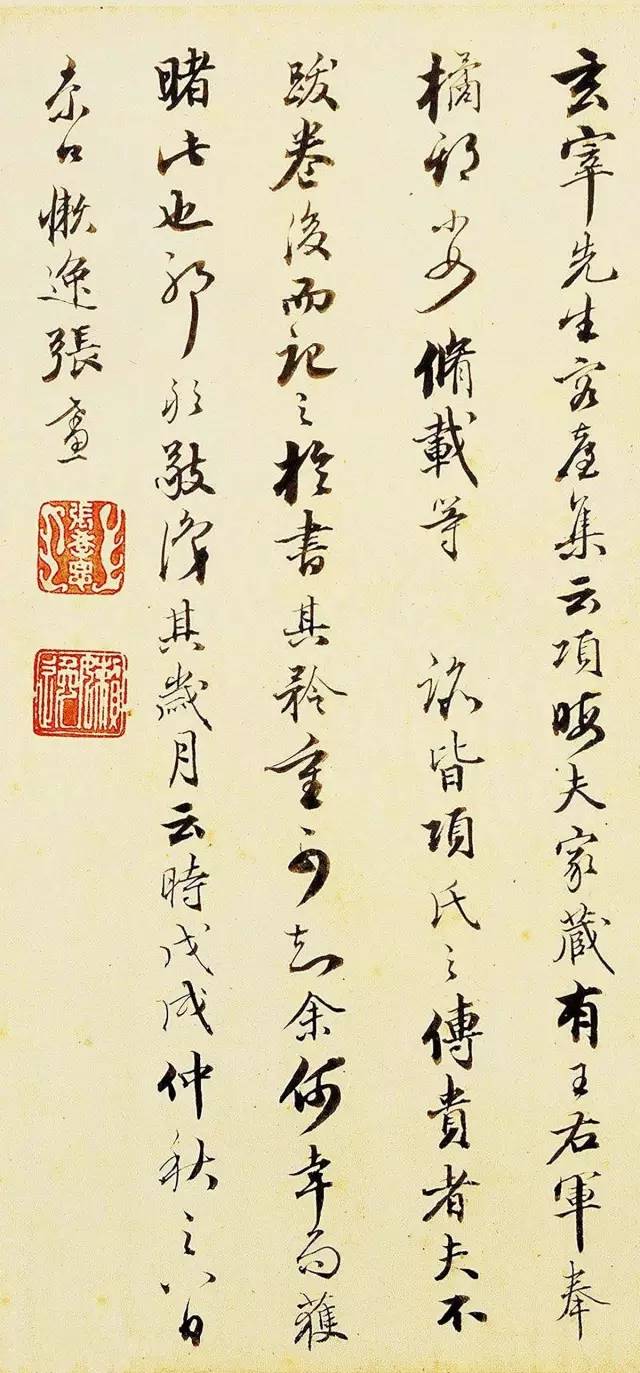 玄宰先生容臺集云項晦夫家藏有王右軍奉
橘脩載等皆項氏之傳貴者夫不
跋卷後而記之於書其矜重可知余何幸而獲
睹此也耶敬識其歲月云時戊戌仲秋之八日
京口懶逸張孝思
張孝思
懶逸